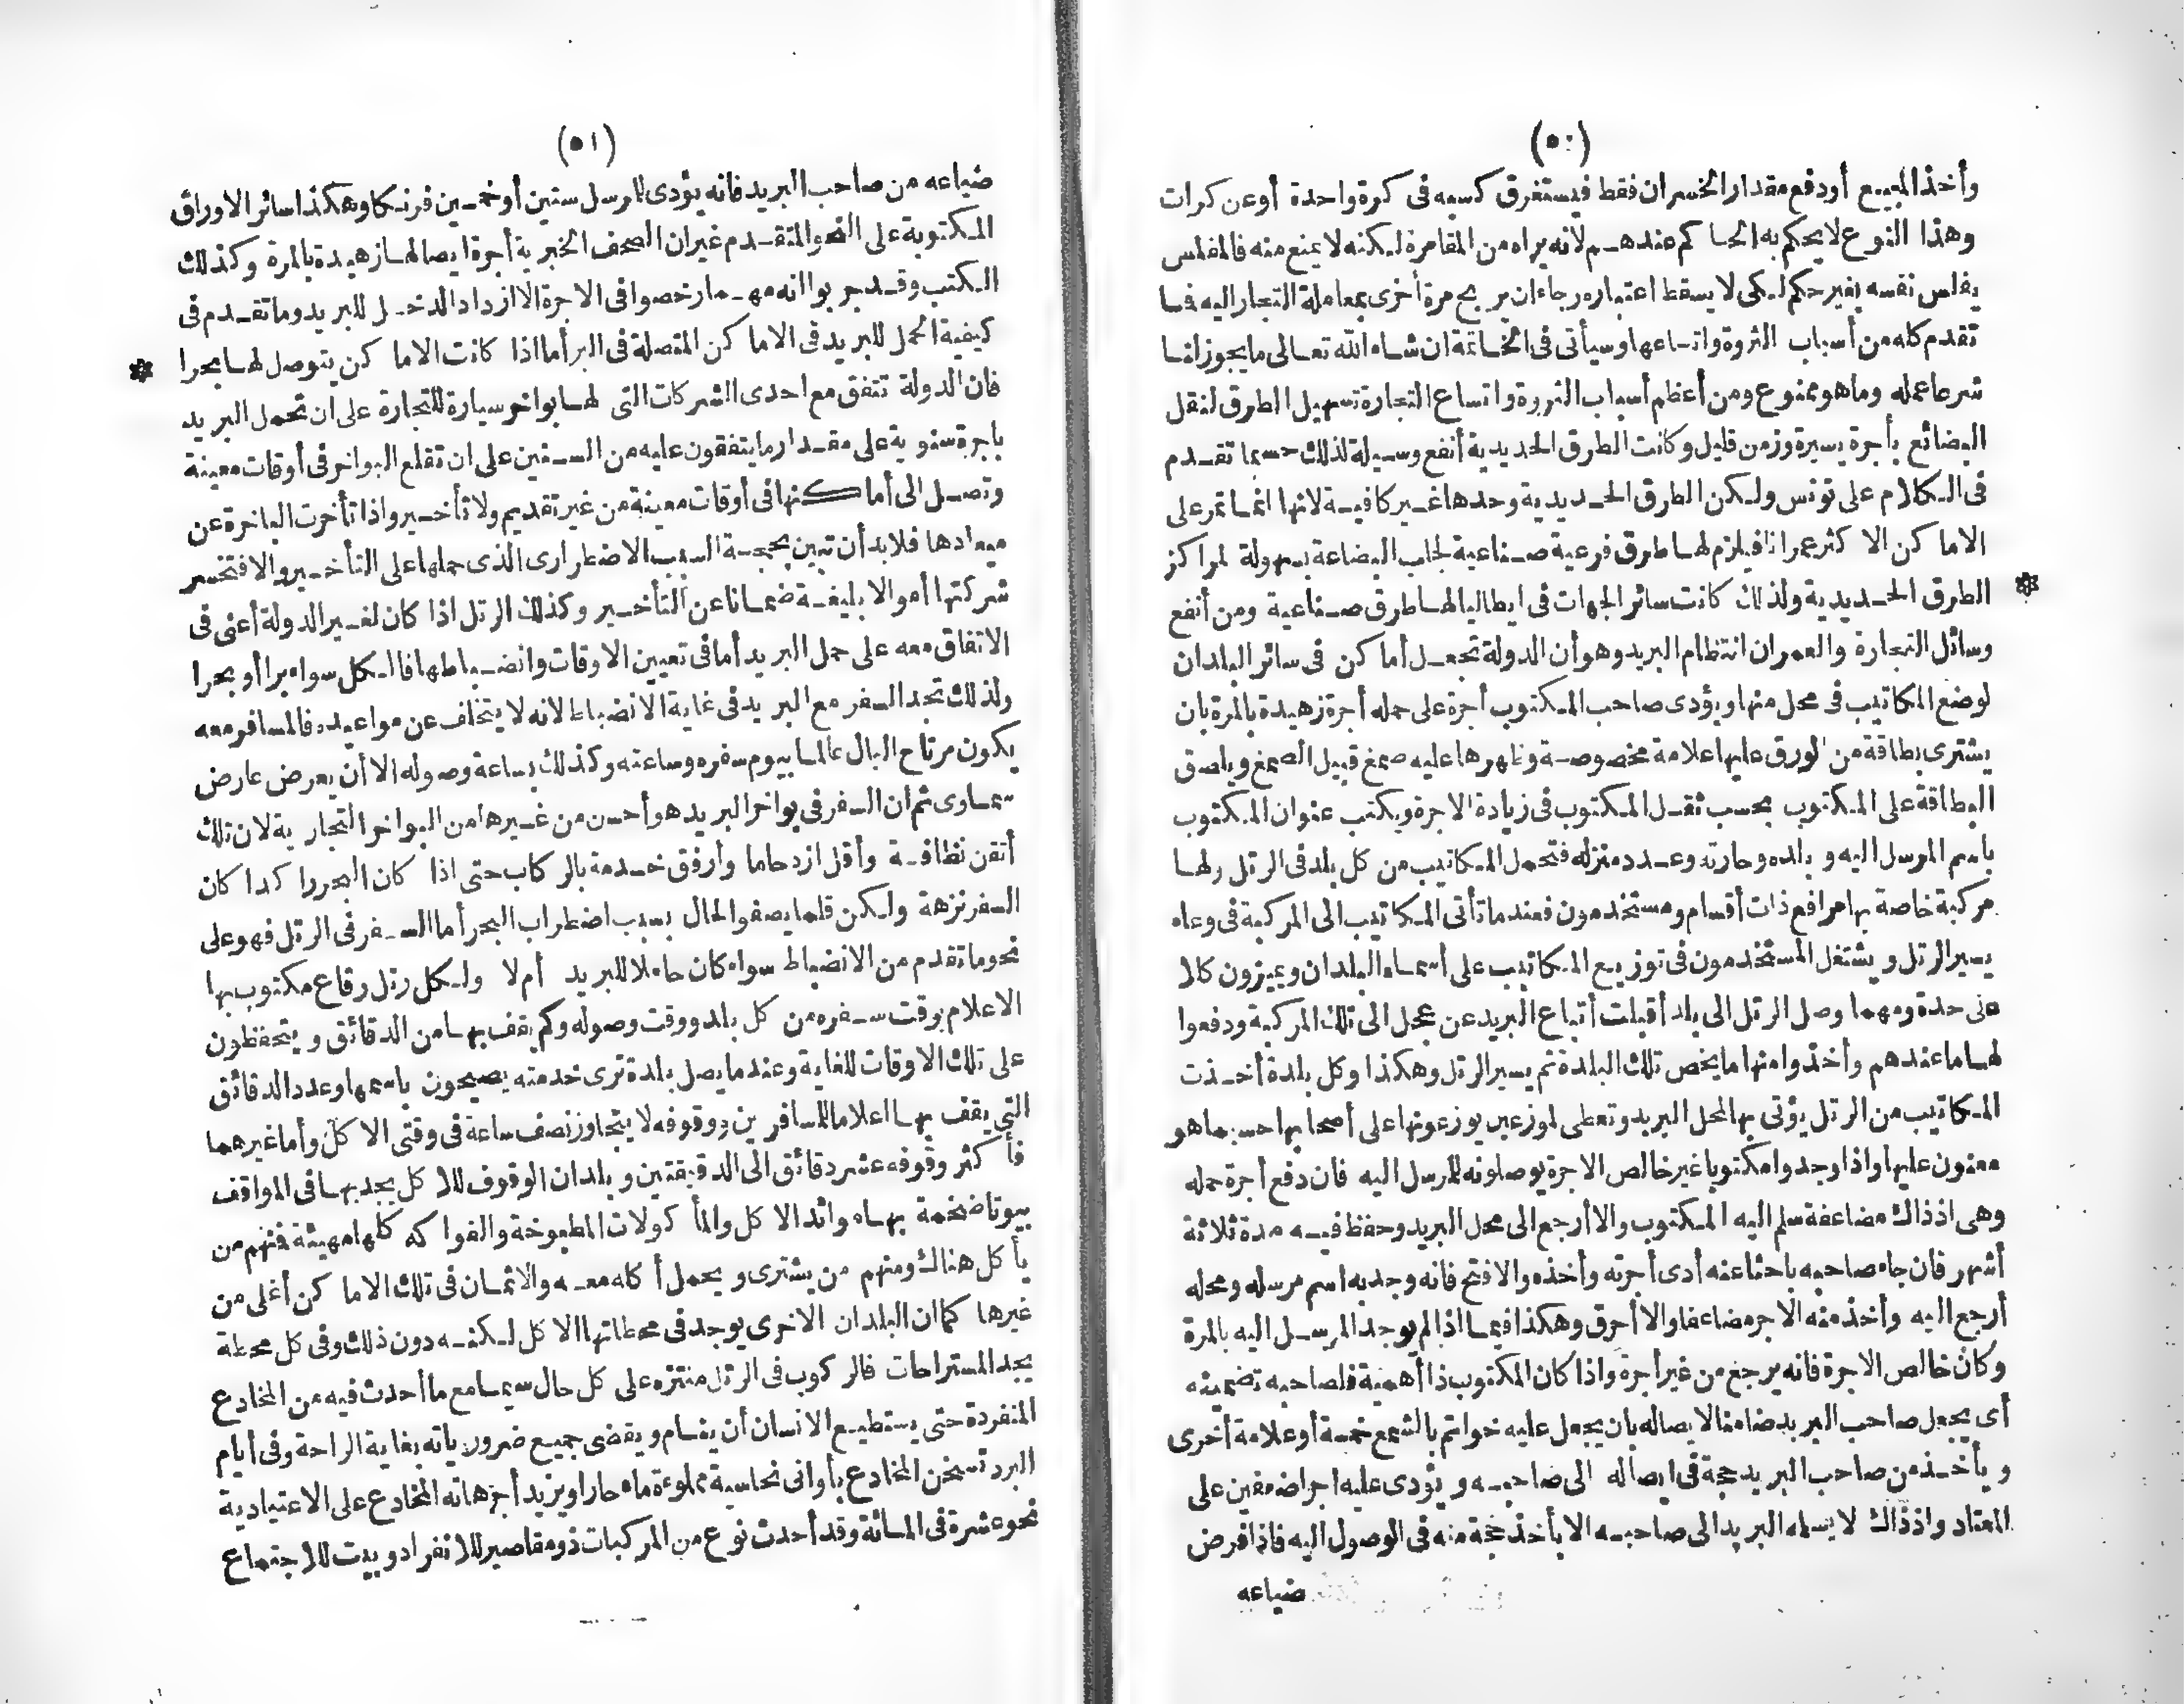 (٥٠)
وأخذ المبيع أودفع مقدار الخسران فقط فيستغرق كسبه فى كرة واحدة أوعن كرات
وهذا النوع لا يحكم به الحاكم عندهم لانه يراه من المقامرة لكنه لا يمنع منه فالمفلس
يفلس نفسه بغير حكم لكى لا يسقط اعتباره رجاء ان يربح مرة أخرى بمعاملة التجار اليه فما
تقدم كله من أسباب الثروة واتساعها وسيأتى فى الخاتمة ان شاء الله تعالى ما يجوز لنا
شرعا عمله وما هو ممنوع ومن أعظم أسباب الثروة واتساع التجارة تسهيل الطرق لنقل
البضائع بأجرة يسيرة وزمن قليل وكانت الطرق الحديدية أنفع وسيلة لذلك حسبما تقدم
فى الكلام على تونس ولكن الطرق الحديدية وحدها غير كافية لانها انما تمر على
الاماكن الاكثر عمرانا فيلزم لها طرق فرعية صناعية لجلب البضاعة بسهولة لمراكز
الطرق الحديدية ولذلك كانت سائر الجهات فى ايطاليا لها طرق صناعية ومن أنفع *
وسائل التجارة والعمران انتظام البريد وهو أن الدولة تجعل أماكن فى سائر البلدان
لوضع المكاتيب فى محل منها ويؤدى صاحب المكتوب أجرة على حمله أجرة زهيدة بالمرة بان
يشترى بطاقة من الورق عليها علامة مخصوصة وظهرها عليه صمغ فيبل الصمغ ويلصق
البطاقة على المكتوب بحسب ثقل المكتوب فى زيادة الاجرة ويكتب عنوان المكتوب
باسم المرسل اليه وبلده وحارته وعدد منزله فتحمل المكاتيب من كل بلد فى الرتل ولها
مركبة خاصة بها مرافع ذات أقسام ومستخدمون فعند ما تأتى المكاتيب الى المركبة فى وعاء
يسير الرتل ويشتغل المستخدمون فى توزيع المكاتيب على أسماء البلدان ويميزون كلا
على حدة ومهما وصل الرتل الى بلد أقبلت أتباع البريد عن عجل الى تلك المركبة ودفعوا
لها ما عندهم وأخذوا منها ما يخص تلك البلدة ثم يسير الرتل وهكذا وكل بلدة أخذت
المكاتيب من الرتل يؤتى بها لمحل البريد وتعطى لموزعين يوزعونها على أصحابها حسبما هو
معنون عليها واذا وجدوا مكتوبا غير خالص الاجرة يوصلونه للمرسل اليه فان دفع أجرة حمله
وهى اذذاك مضاعفة سلم اليه المكتوب والا أرجع الى محل البريد وحفظ فيه مدة ثلاثة
أشهر فان جاء صاحبه باحثا عنه أدى أجرته وأخذه والا فتح فانه وجد به اسم مرسله ومحله
أرجع اليه وأخذ منه الاجر مضاعفا والا أحرق وهكذا فيما اذا لم يوجد المرسل اليه بالمرة
وكان خالص الاجرة فانه يرجع من غير أجرة واذا كان المكتوب ذا أهمية فلصاحبه تضمينه
أى يجعل صاحب البريد ضامنا لايصاله بان يجعل عليه خواتم بالشمع خمسة أو علامة أخرى
ويأخذ من صاحب البريد حجة فى ايصاله الى صاحبه ويؤدى عليه اجرا ضعفين على
المعتاد واذذاك لا يسلمه البريد الى صاحبه الا بأخذ حجة منه فى الوصول اليه فاذا فرض
ضياعه
(٥١)
ضياعه من صاحب البريد فانه يؤدى للمرسل ستين أو خمسين فرنكا وهكذا سائر الاوراق
المكتوبة على النحو المتقدم غير ان الصحف الخبرية أجرة ايصالها زهيدة بالمرة وكذلك
الكتب وقد جربوا انه مهما رخصوا فى الاجرة الا ازداد الدخل للبريد وما تقدم فى
كيفية الحمل للبريد فى الاماكن المتصلة فى البر أما اذا كانت الاماكن يتوصل لها بحرا *
فان الدولة تتفق مع احدى الشركات التى لها بواخر سيارة للتجارة على ان تحمل البريد
باجرة سنوية على مقدار ما يتفقون عليه من السنين على ان تقلع البواخر فى أوقات معينة
وتصل الى أماكنها فى أوقات معينة من غير تقديم ولا تأخير واذا تأخرت الباخرة عن
ميعادها فلا بد أن تبين بحجة السبب الاضطرارى الذى حملها على التأخير والا فتخسر
شركتها أموالا بليغة ضمانا عن التأخير وكذلك الرتل اذا كان لغير الدولة أعنى فى
الاتفاق معه على حمل البريد أما فى تعيين الاوقات وانضباطها فالكل سواء برا أو بحرا
ولذلك تجد السفر مع البريد فى غاية الانضباط لانه لا يتخلف عن مواعيده فالمسافر معه
يكون مرتاح البال عالما بيوم سفره وساعته وكذلك بساعة وصوله الا أن يعرض عارض
سماوى ثم ان السفر فى بواخر البريد هو أحسن من غيرها من البواخر التجارية لان تلك
أتقن نظافة وأقل ازدحاما وأرفق خدمة بالركاب حتى اذا كان البحر راكدا كان
السفر نزهة ولكن قلما يصفو الحال بسبب اضطراب البحر أما السفر فى الرتل فهو على
نحو ما تقدم من الانضباط سواء كان حاملا للبريد أم لا ولكل رتل رقاع مكتوب بها
الاعلام بوقت سفره من كل بلد ووقت وصوله وكم يقف بها من الدقائق ويتحفظون
على تلك الاوقات للغاية وعند ما يصل بلدة ترى خدمته يصيحون باسمها وعدد الدقائق
التى يقف بها اعلاما للمسافرين ووقوفه لا يتجاوز نصف ساعة فى وقتى الاكل وأما غيرهما
فأكثر وقوفه عشر دقائق الى الدقيقتين وبلدان الوقوف للاكل يجد بها فى المواقف
بيوتا ضخمة بها موائد الاكل والمأكولات المطبوخة والفواكه كلها مهيئة فمنهم من
يأكل هناك ومنهم من يشترى ويحمل أكله معه والاثمان فى تلك الاماكن أغلى من
غيرها كما ان البلدان الاخرى يوجد فى محطاتها الاكل لكنه دون ذلك وفى كل محطة
يجد المستراحات فالركوب فى الرتل منتزه على كل حال سيما مع ما أحدث فيه من المخادع
المنفردة حتى يستطيع الانسان أن ينام ويقضى جميع ضرورياته بغاية الراحة وفى أيام
البرد تسخن المخادع بأوانى نحاسية مملوءة ماء حارا ويزيد أجر هاته المخادع على الاعتيادية
نحو عشرة فى المائة وقد أحدث نوع من المركبات ذو مقاصير للانفراد وبيت للاجتماع